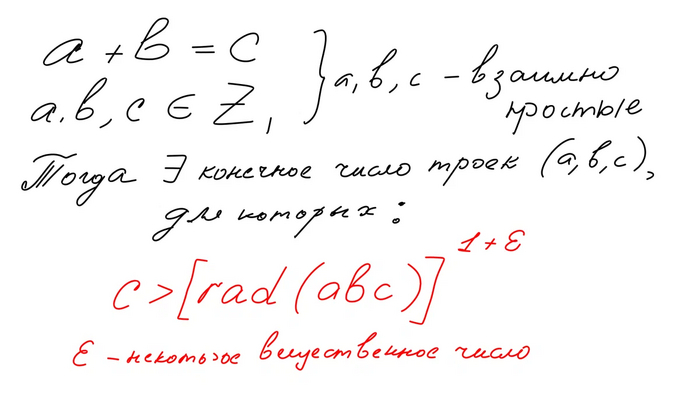 a + b = c
a, b, c ∈ Z, } a, b, c – взаимно простые
Тогда ∃ конечное число троек (a, b, c),
для которых:
c > [rad (abc)]^{1+ε}
ε – некоторое вещественное число